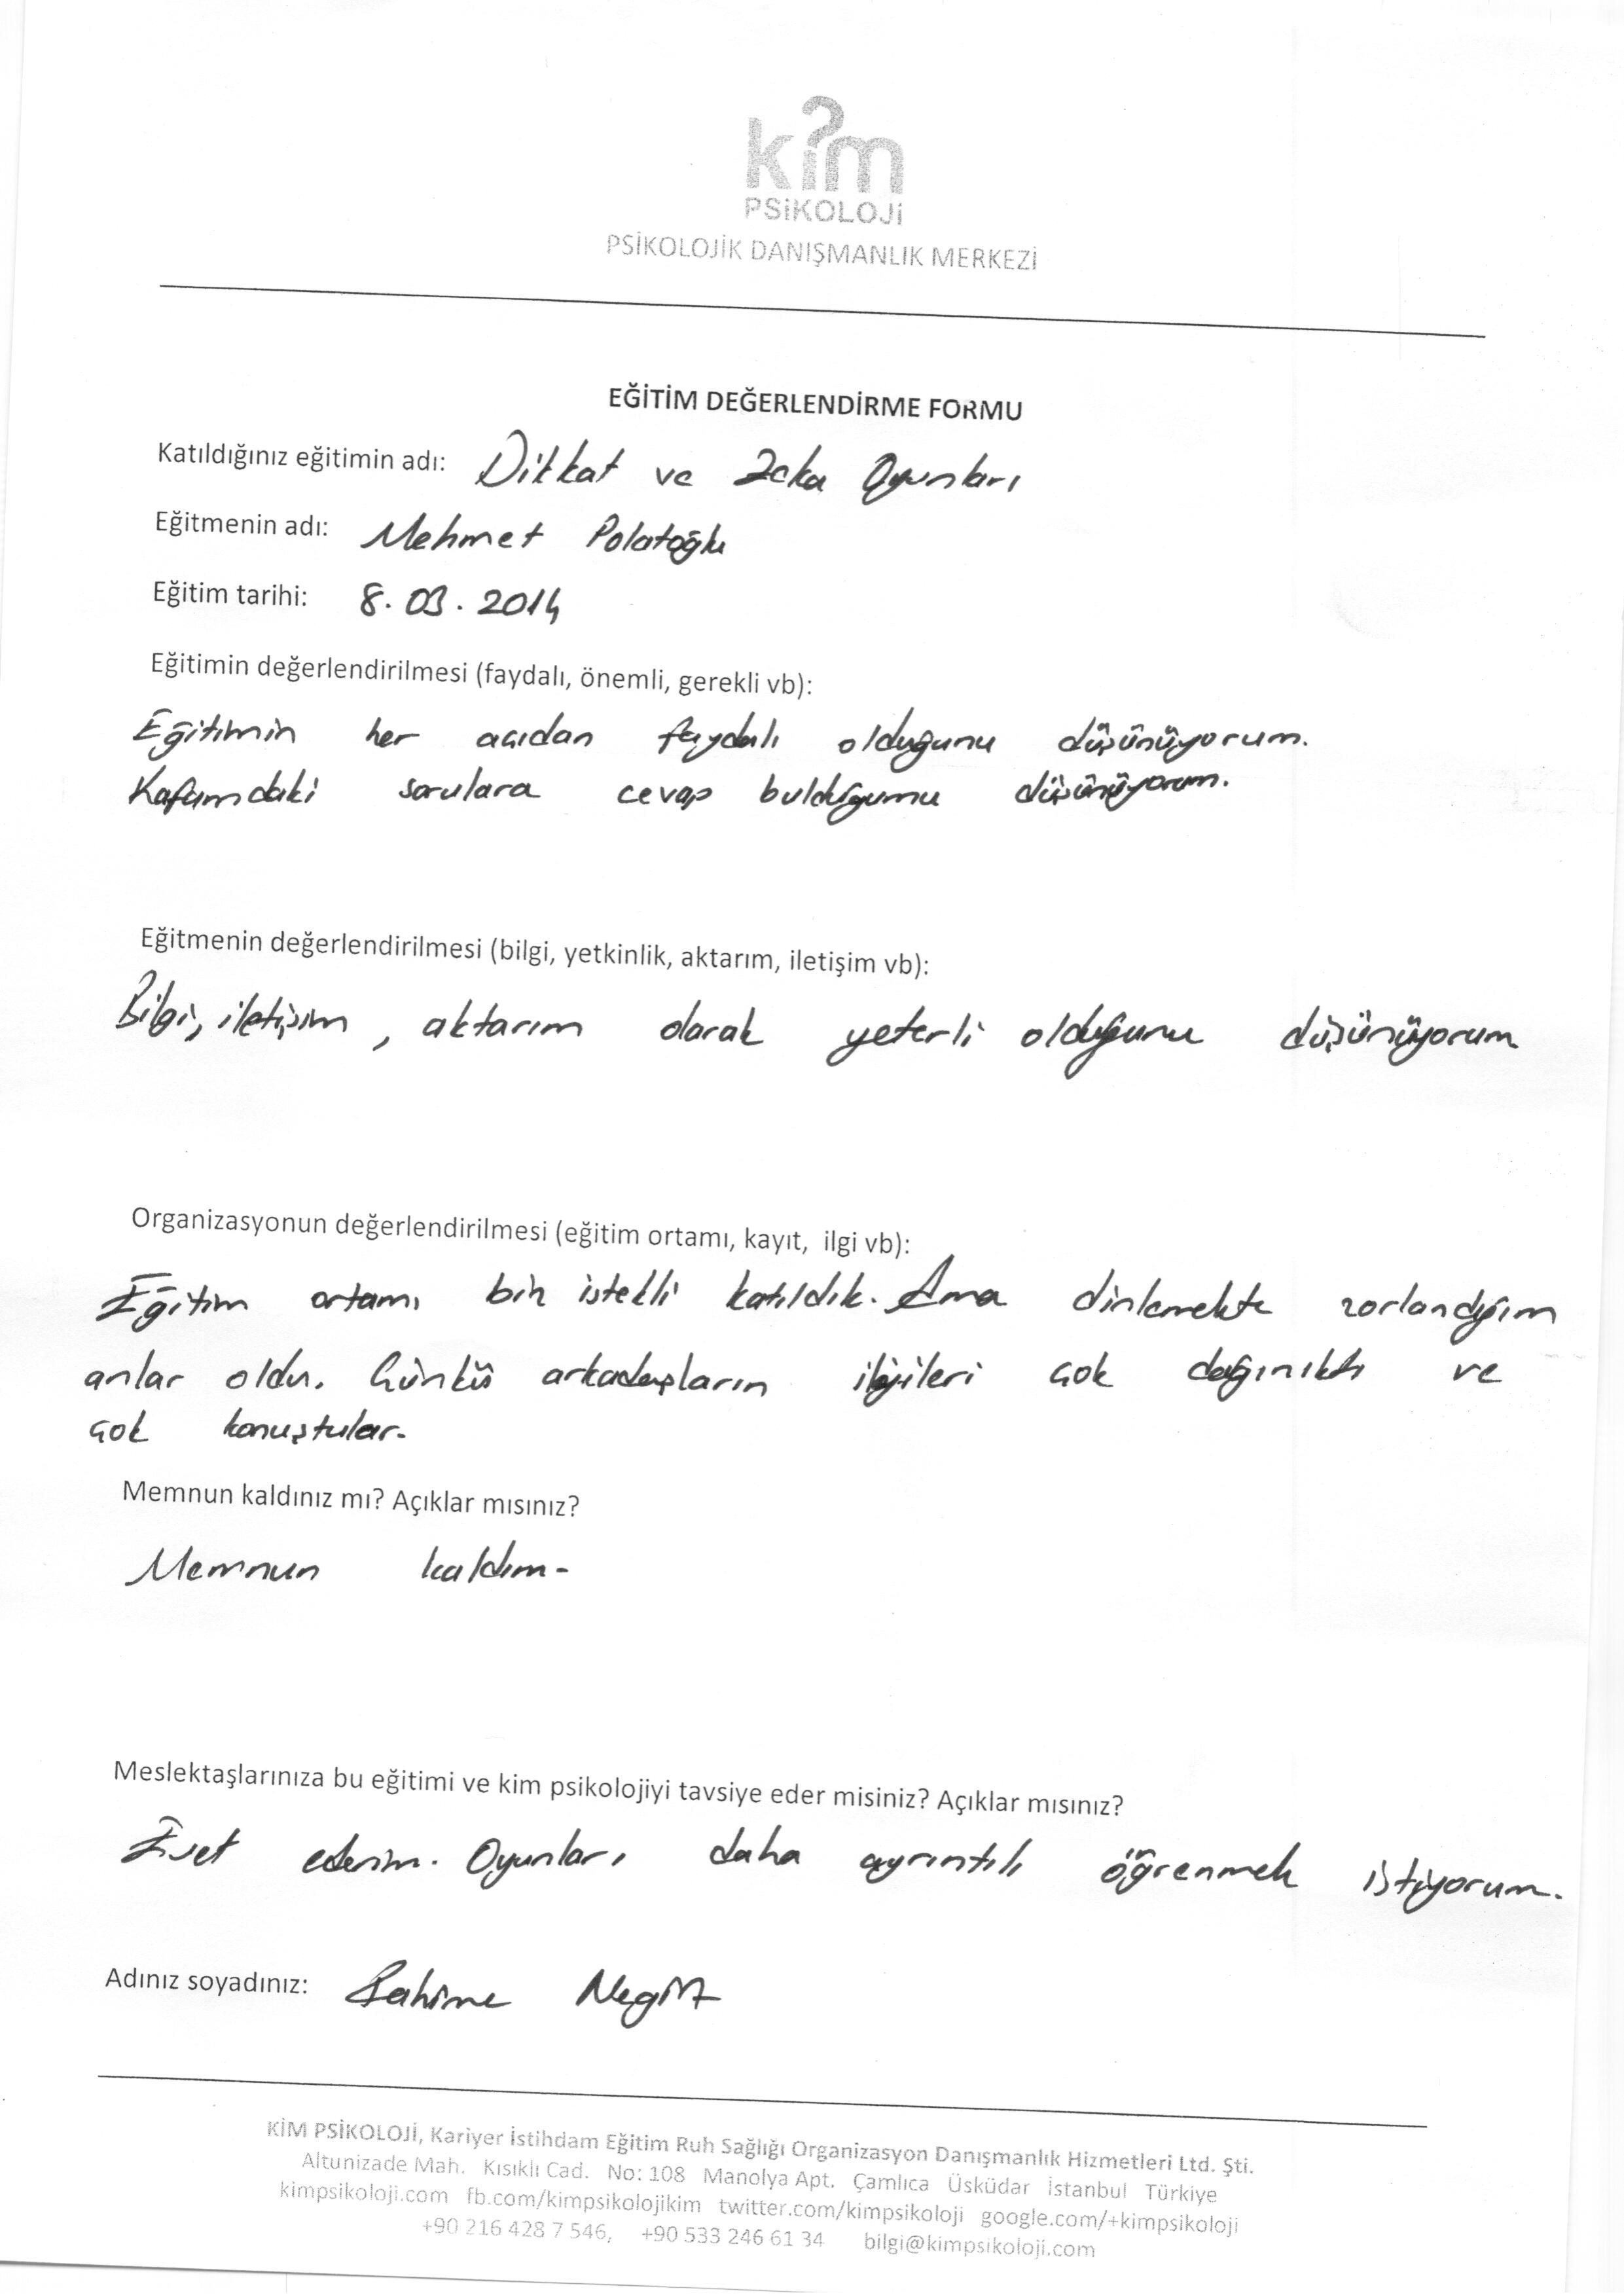 kim
PSİKOLOJİ
PSİKOLOJİK DANIŞMANLIK MERKEZİ
EĞİTİM DEĞERLENDİRME FORMU
Katıldığınız eğitimin adı: Dikkat ve Zeka Oyunları
Eğitmenin adı: Mehmet Polatoğlu
Eğitim tarihi: 8.03.2014
Eğitimin değerlendirilmesi (faydalı, önemli, gerekli vb):
Eğitimin her açıdan faydalı olduğunu düşünüyorum.
Kafamdaki sorulara cevap bulduğumu düşünüyorum.
Eğitmenin değerlendirilmesi (bilgi, yetkinlik, aktarım, iletişim vb):
Bilgi, iletişim, aktarım olarak yeterli olduğunu düşünüyorum
Organizasyonun değerlendirilmesi (eğitim ortamı, kayıt, ilgi vb):
Eğitim ortamı istekli katıldık. Ama dinlemekte zorlandığım
anlar oldu. Günkü arkadaşların ilgileri çok dağınıktı ve
çok konuştular.
Memnun kaldınız mı? Açıklar mısınız?
Memnun kaldım.
Meslektaşlarınıza bu eğitimi ve kim psikolojiyi tavsiye eder misiniz? Açıklar mısınız?
Evet ederim. Oyunları daha ayrıntılı öğrenmek istiyorum.
Adınız soyadınız:
KİM PSİKOLOJİ, Kariyer İstihdam Eğitim Ruh Sağlığı Organizasyon Danışmanlık Hizmetleri Ltd. Şti.
Altunizade Mah. Kısıklı Cad. No: 108 Manolya Apt. Çamlıca Üsküdar İstanbul Türkiye
kimpsikoloji.com fb.com/kimpsikolojikim twitter.com/kimpsikoloji google.com/+kimpsikoloji
+90 216 428 7 546, +90 533 246 61 34 bilgi@kimpsikoloji.com